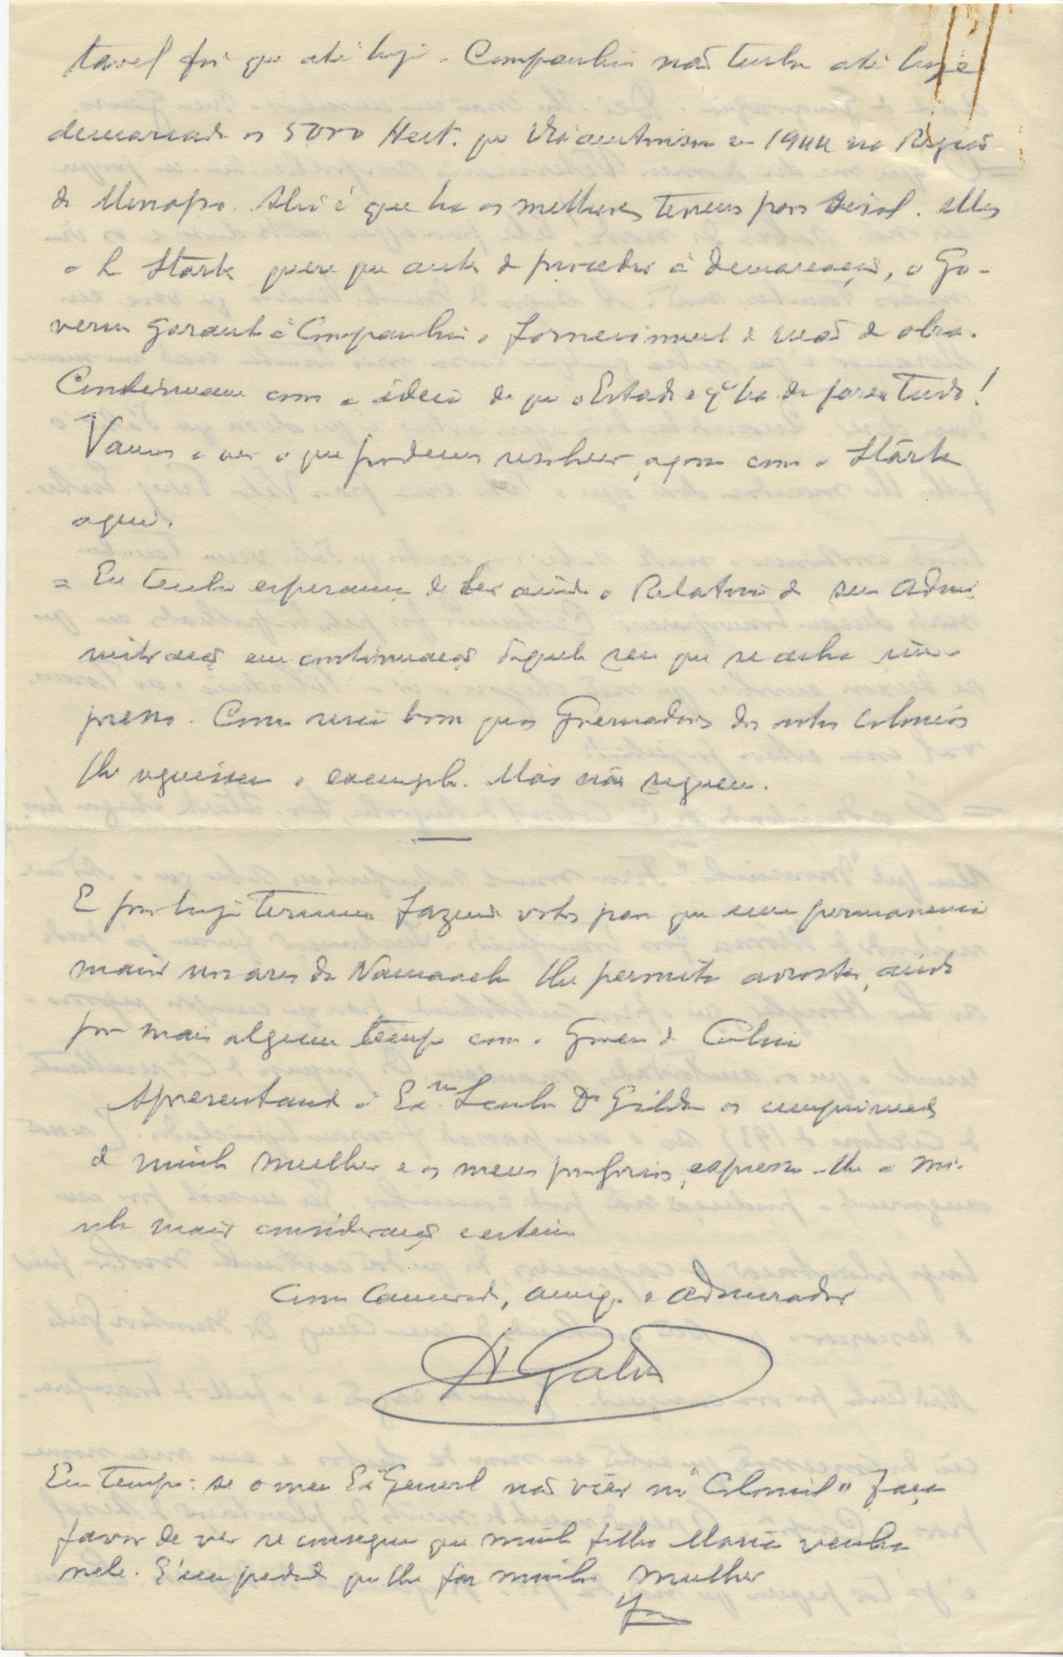 tavel foi que até hoje a Companhia não tenha até hoje
demarcado os 5000 Hect. que lhe autorisou em 1944 na Região
de Monapo. Ali é que ha os melhores terrenos para Sisal. Mas
o Stärk quere que antes de proceder á demarcação, o Go-
verno garanta á Companhia o fornecimento de mão de obra.
Continuam com a ideia de que o Estado é qᵉ ha de fazer Tudo!
Vamos a ver o que podemos resolver, agora com o Stärk
aqui.
= Eu tenho esperança de ler ainda o Relatorio da sua Admi-
nistração em continuação daquele seu que se acha im-
presso. Como seria bom que os Governadores das outras Colonias
lhe seguissem o exemplo. Mas não seguem.
E por hoje termino fazendo votos para que uma permanencia
maior nos ares da Namaacha lhe permita arrostar, ainda
por mais algum tempo com o Governo da Colonia
Apresentando á Exᵐᵃ Senhora Dᵃ Gilda os cumprimentos
de minha mulher e os meus proprios, expresso-lhe a mi-
nha maior consideração e estima
Como Camarada, amigo e admirador
Galvão
Em tempo: se o meu Exᵐᵒ General não vier no "Colonial" faça
favor de ver se consegue que minha filha Maria venha
nele. É um pedido que lhe faz minha mulher